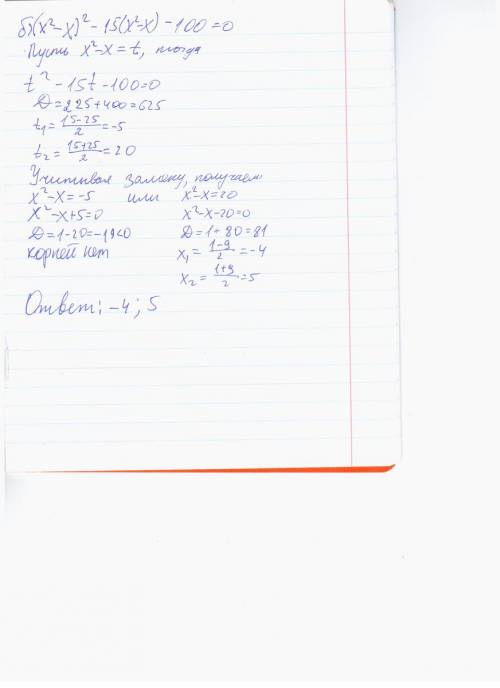 б) (x²-x)² - 15(x²-x) - 100=0
Пусть x²-x=t, тогда
t² - 15t - 100=0
D=225+400=625
t₁= (15-25)/2 = -5
t₂= (15+25)/2 = 20
Учитывая замену, получаем:
x²-x=-5 или x²-x=20
x²-x+5=0 x²-x-20=0
D=1-20=-19<0 D=1+80=81
корней нет x₁= (1-9)/2 = -4
x₂= (1+9)/2 = 5
Ответ: -4; 5